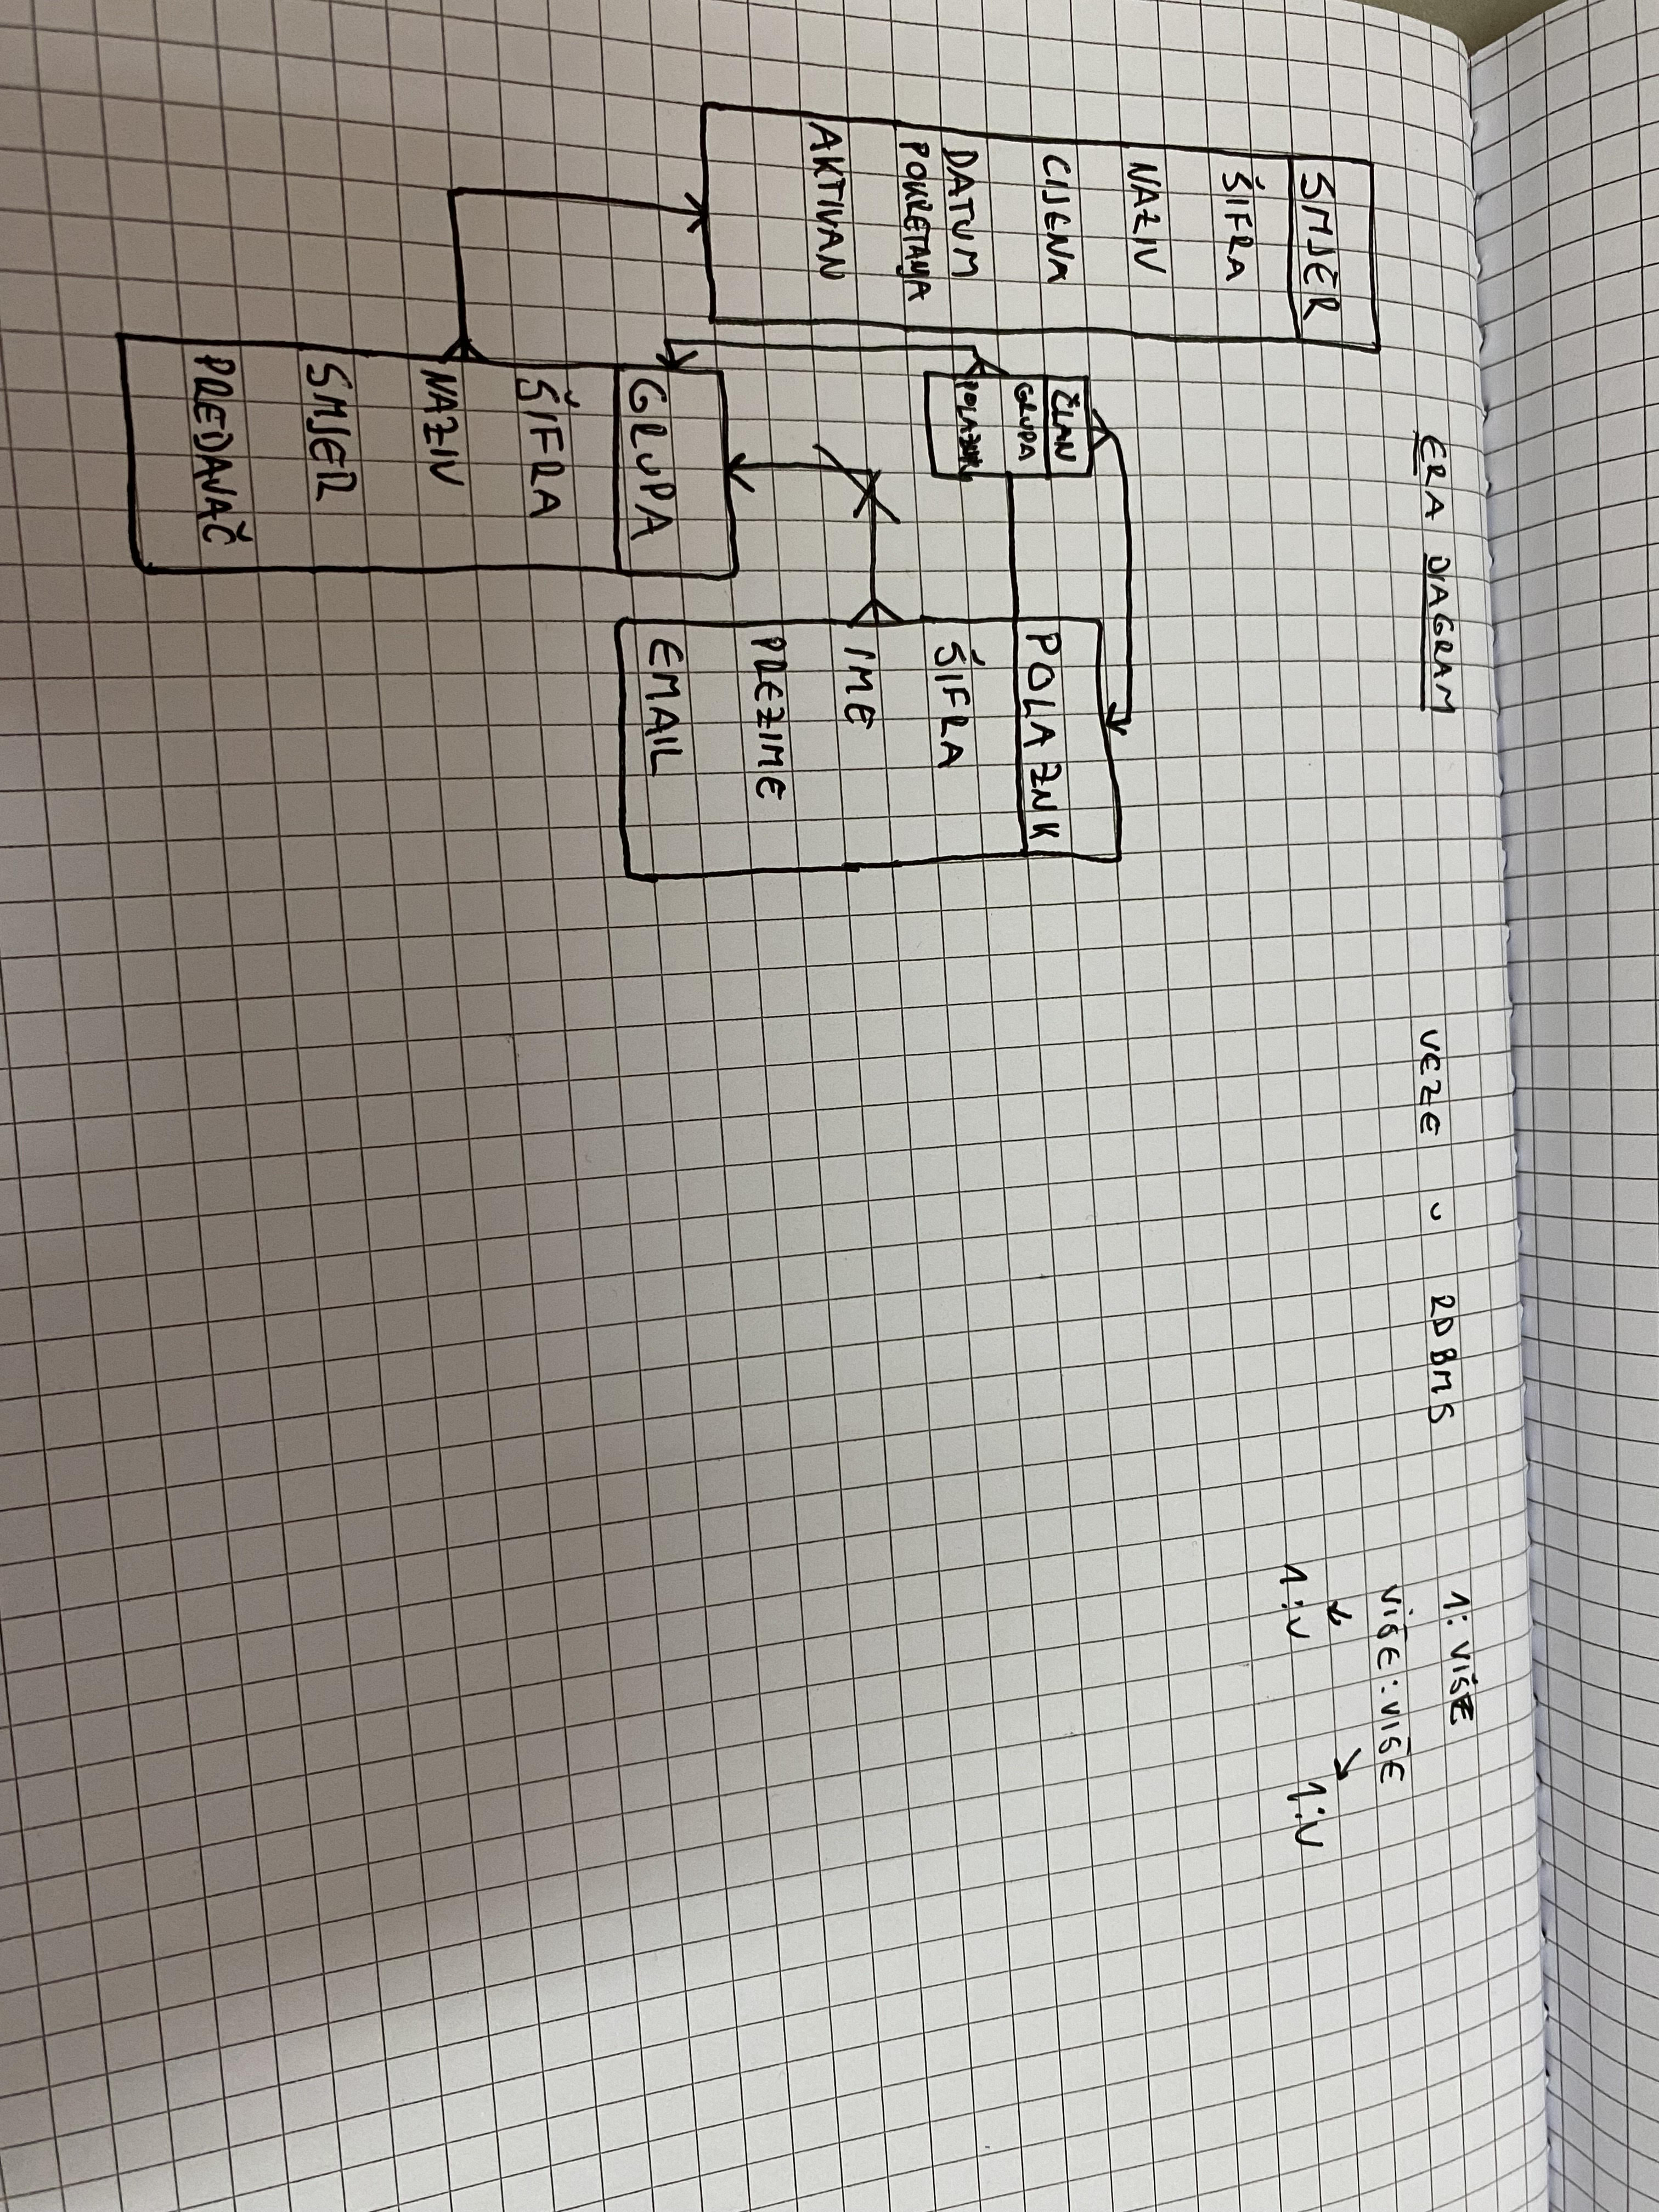 ERA DIAGRAM
VEZE U RDBMS
1: VIŠE
VIŠE : VIŠE
1:V 1:V
SMJER
ŠIFRA
NAZIV
CIJENA
DATUM
POKRETANJA
AKTIVAN
ČLAN
GRUPA
POLAZNIK
POLAZNK
ŠIFRA
IME
PREZIME
EMAIL
GRUPA
ŠIFRA
NAZIV
SMJER
PREDAVAČ